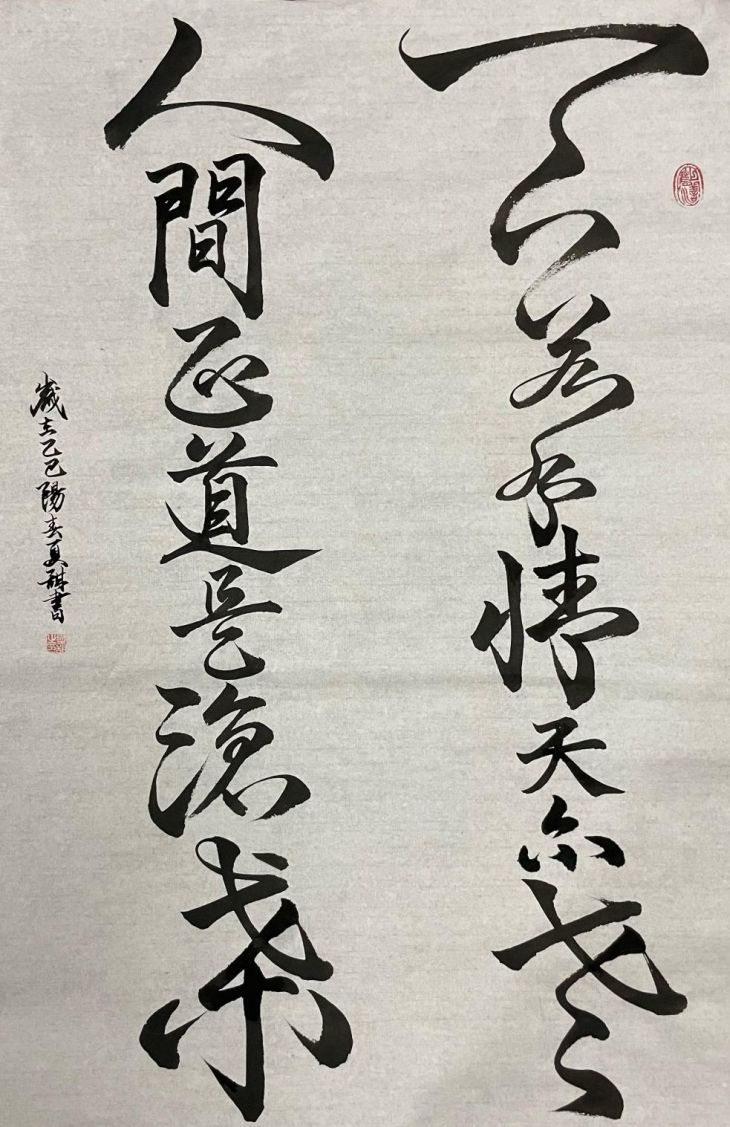 天若有情天亦老
人間正道是滄桑
歲在乙巳陽春夏書